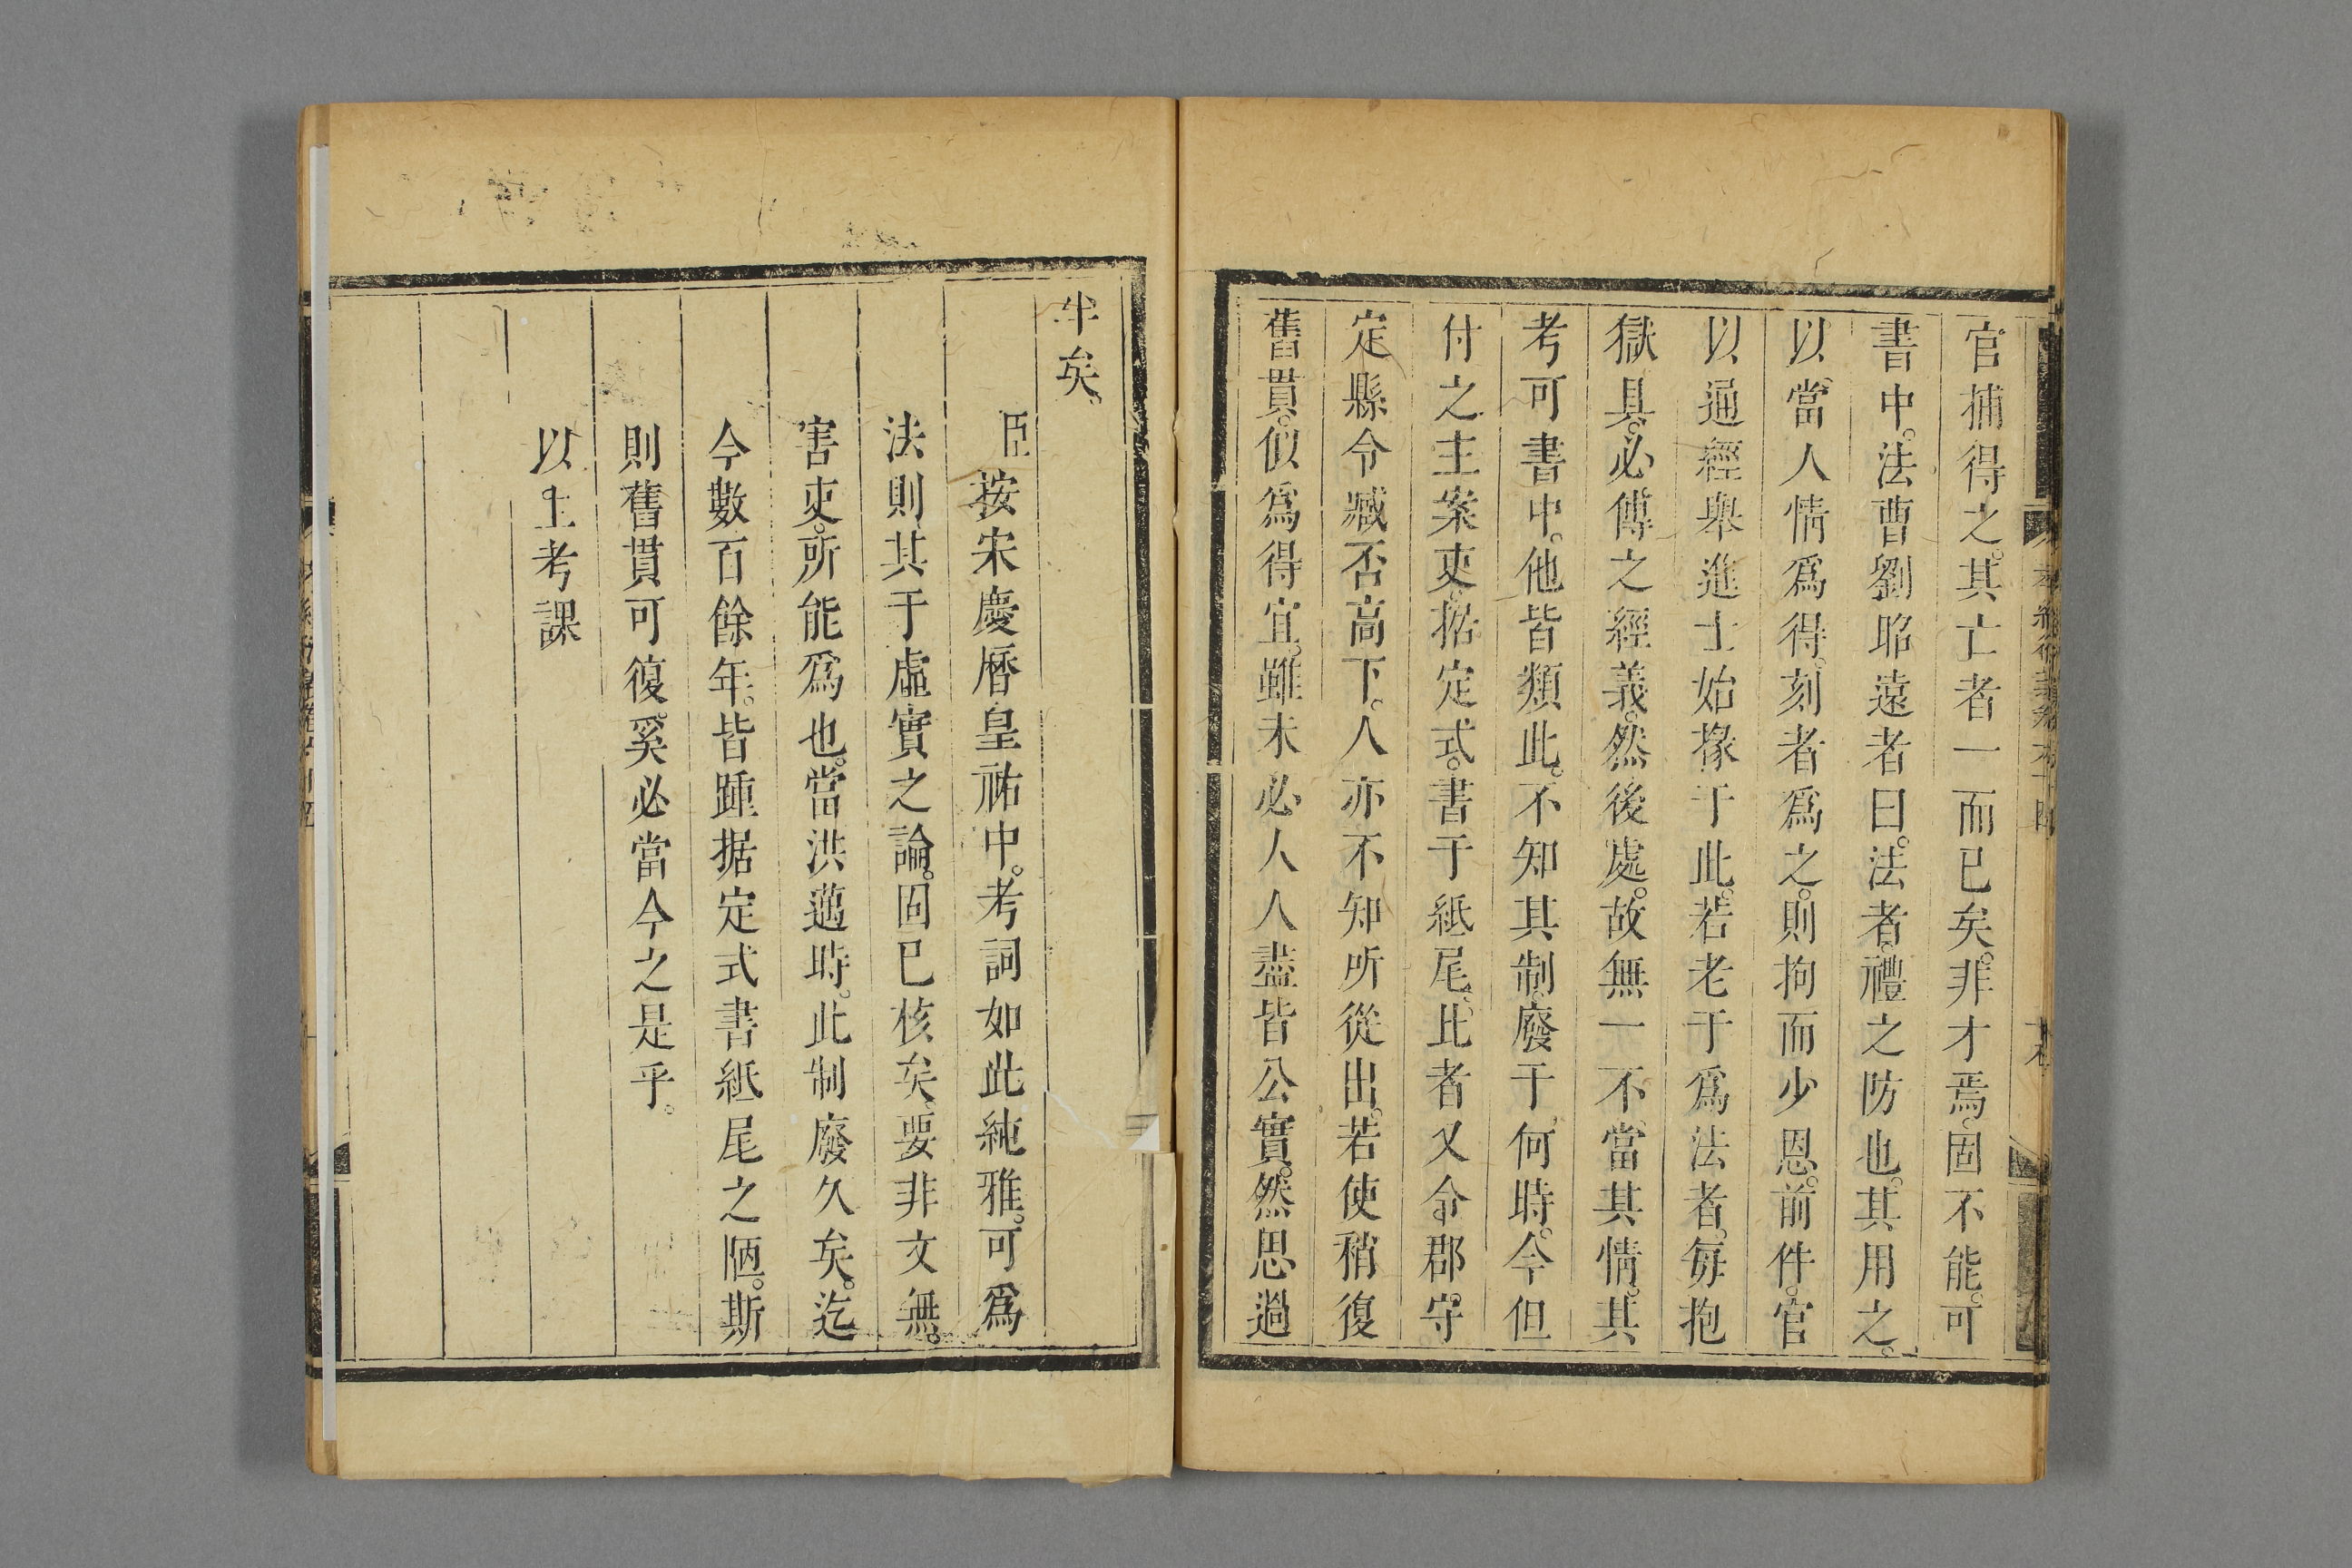 官捕得之。其亡者一而已矣。非才焉。固不能。可
書中。法曹劉昭遠者曰。法者。禮之防也。其用之。
以當人情爲得。刻者爲之。則拘而少恩。前件。官
以通經舉進士始掾于此。若老于爲法者。每抱
獄具。必傅之經義。然後處。故無一不當其情。其
考可書中。他皆類此。不知其制。廢于何時。今但
付之主案吏。据定式。書于紙尾。比者又令郡守。
定縣令臧否高下。人亦不知所從出。若使稍復
舊貫。似爲得宜。雖未必人人盡皆公實。然思過
半矣。
臣按宋慶曆皇祐中。考詞如此純雅。可爲
法則。其于虛實之論。固已核矣。要非文無
害吏。所能爲也。當洪邁時。此制廢久矣。迄
今數百餘年。皆踵据定式書紙尾之陋。斯
則舊貫可復。奚必當今之是乎。
以上考課